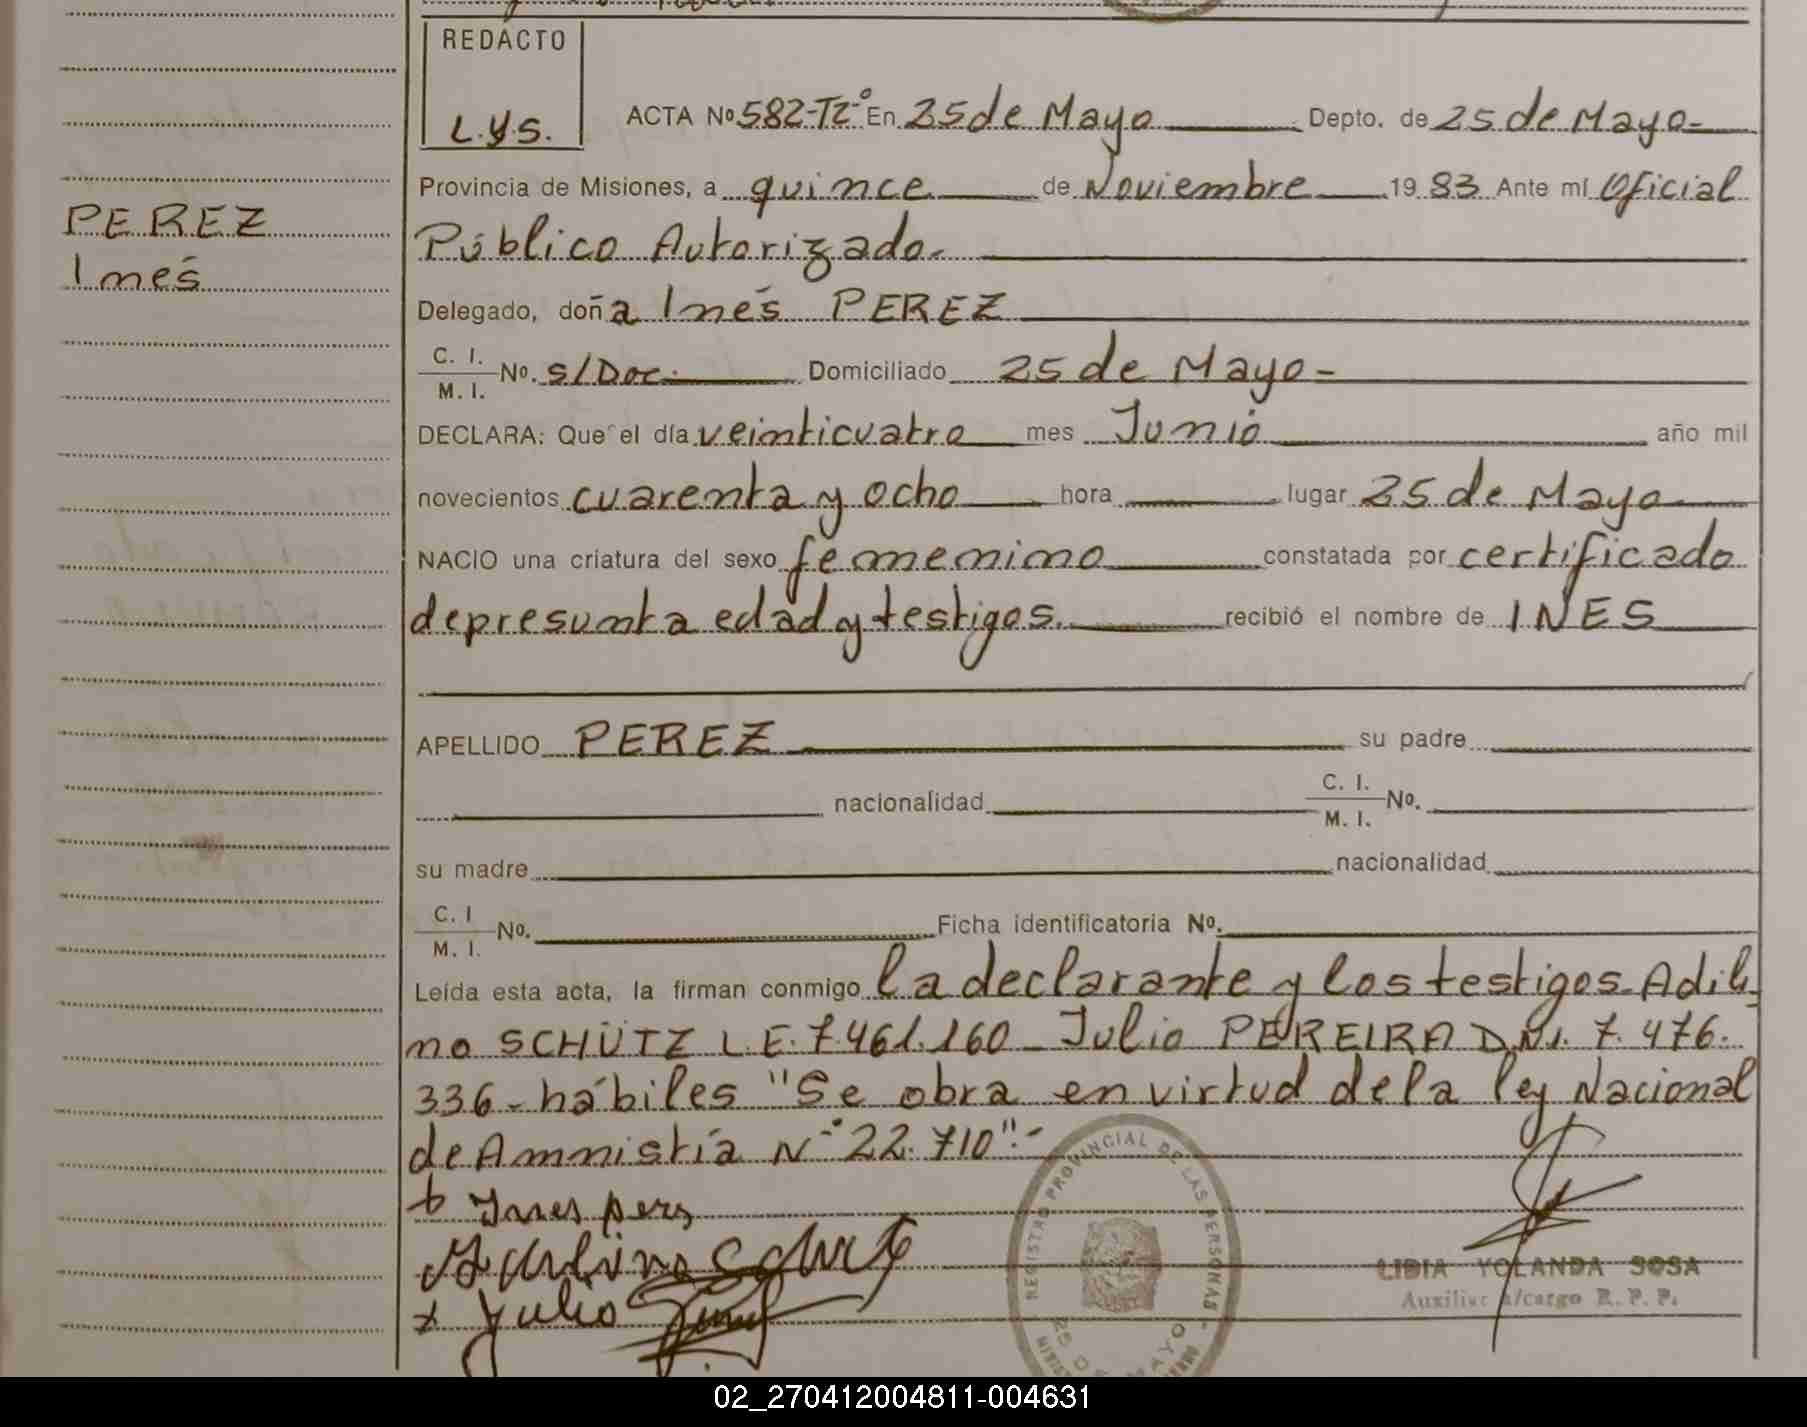 REDACTO
L.Y.S.
ACTA No 582-Tº2º En 25 de Mayo Depto. de 25 de Mayo-
Provincia de Misiones, a quince de Noviembre 19 83 Ante mí Oficial
PEREZ
Inés
Público Autorizado.
Delegado, doña Inés PEREZ
C. I.
M. I. No. S/Doc. Domiciliado 25 de Mayo-
DECLARA: Que el día veinticuatro mes Junio año mil
novecientos cuarenta y ocho hora lugar 25 de Mayo
NACIO una criatura del sexo femenino constatada por certificado
de presunta edad y testigos. recibió el nombre de INES
APELLIDO PEREZ su padre
nacionalidad C. I. M. I. No.
su madre nacionalidad
C. I M. I. No. Ficha identificatoria No.
Leída esta acta, la firman conmigo la declarante y los testigos Adili
no SCHÜTZ L.E. 7.461.160 - Julio PEREIRA D.N.I. 7.476.
336 - hábiles "Se obra en virtud de la ley Nacional
de Amnistía Nº 22.710".-
Ines perz
Julio
REGISTRO PROVINCIAL DE LAS PERSONAS
25 DE MAYO
LIDIA YOLANDA SOSA
Auxiliar a/cargo R. P. P.
02_270412004811-004631